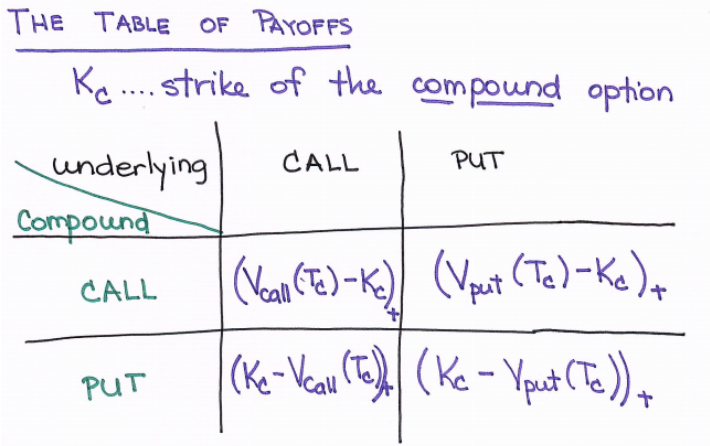 THE TABLE OF PAYOFFS
Kc .... strike of the compound option
underlying CALL PUT
Compound
CALL (Vcall(Tc)-Kc)+ (Vput(Tc)-Kc)+
PUT (Kc-Vcall(Tc))+ (Kc-Vput(Tc))+